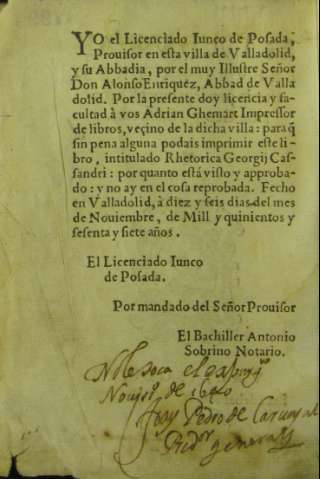 YO el Licenciado Iunco de Posada,
Prouisor en esta villa de Valladolid,
y su Abbadia, por el muy Illustre Señor
Don Alonso Enriquez, Abbad de Valla
dolid. Por la presente doy licencia y fa-
cultad à vos Adrian Ghemart Impressor
de libros, veçino de la dicha villa: para q̃
sin pena alguna podais imprimir este li-
bro, intitulado Rhetorica Georgij Cas-
sandri: por quanto está visto y approba-
do: y no ay en el cosa reprobada. Fecho
en Valladolid, à diez y seis dias del mes
de Nouiembre, de Mill y quinientos y
sesenta y siete años.
El Licenciado Iunco
de Posada.
Por mandado del Señor Prouisor
El Bachiller Antonio
Sobrino Notario.
No le toca el
de 1640
fray Pedro de